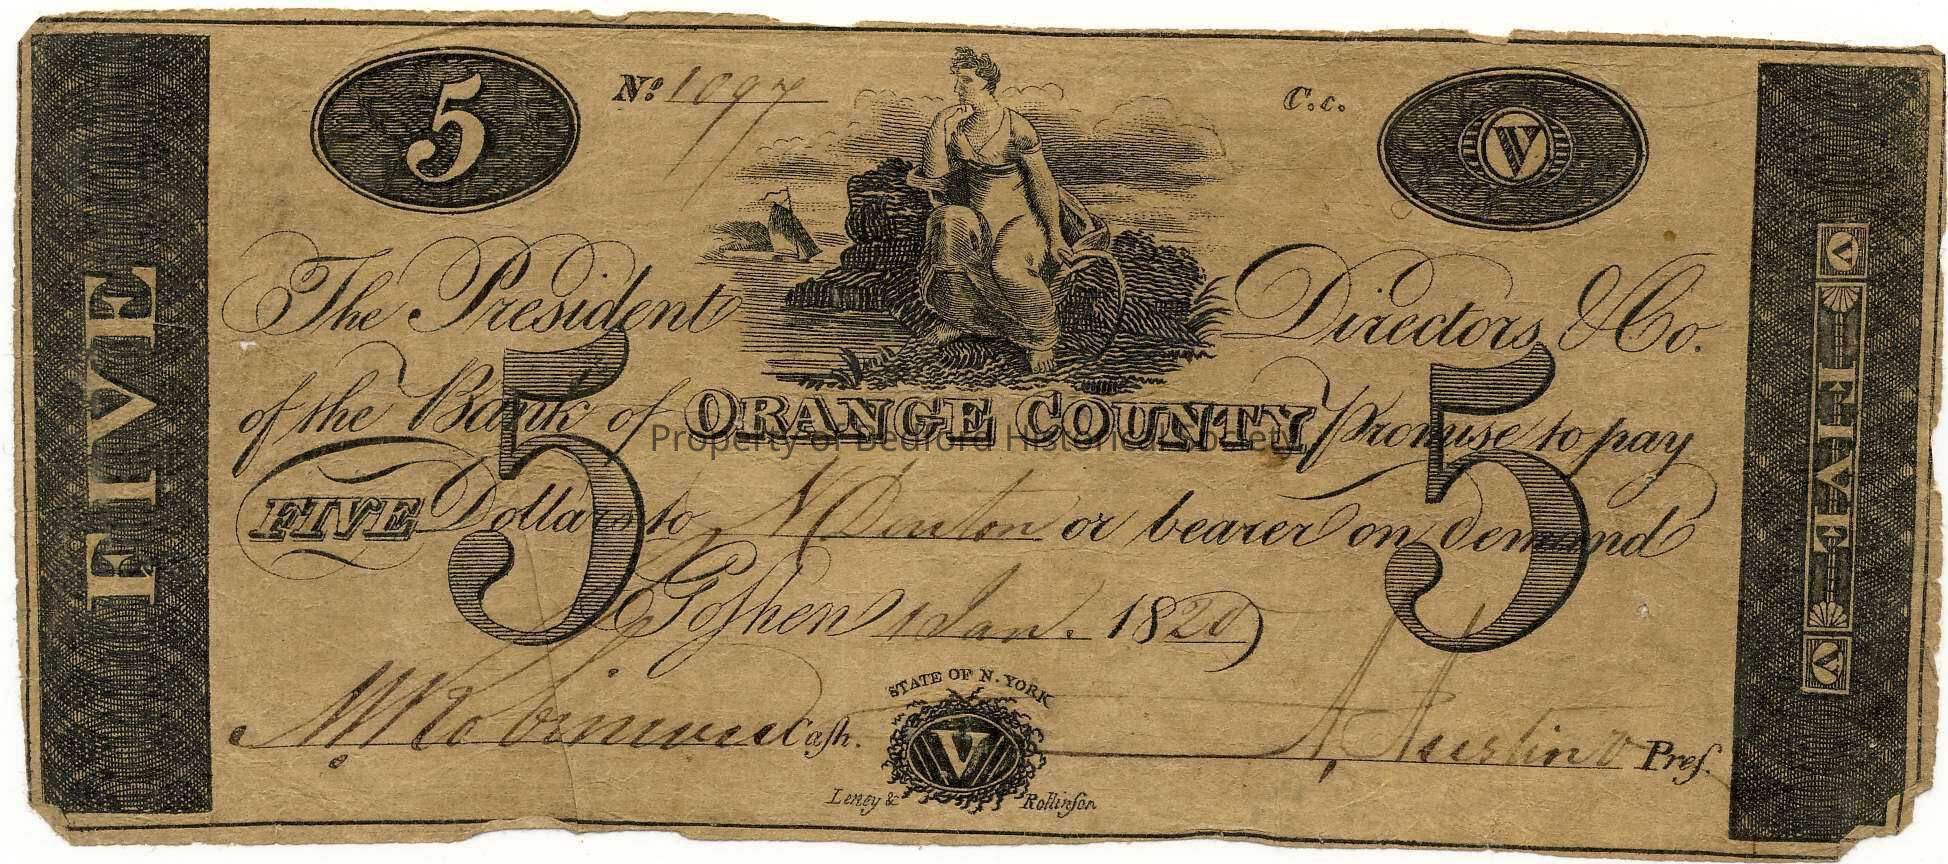 5 No. 1097 C. c. V
The President Directors, & Co.
of the Bank of ORANGE COUNTY Promise to pay
FIVE Dollars to N Denton or bearer on demand
Goshen 1 Jan. 1820
5 5
Cash. A Austin Pres.
STATE OF N. YORK
V
Leney & Rollinson
FIVE
V FIVE V
Property of Bedford Historical Society